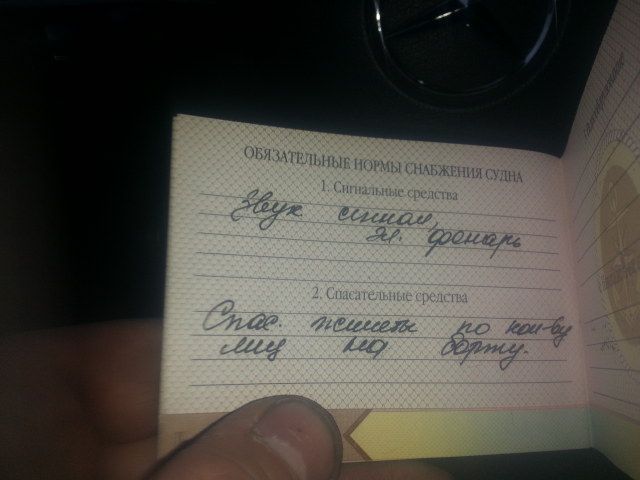 ОБЯЗАТЕЛЬНЫЕ НОРМЫ СНАБЖЕНИЯ СУДНА
1. Сигнальные средства
Звук сигнал,
эл. фонарь
2. Спасательные средства
Спас. жилеты по кол-ву
лиц на борту.